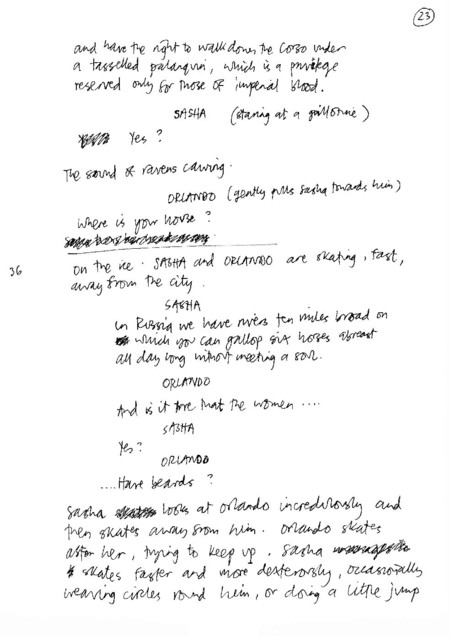 23
and have the right to walk down the Corso under
a tasselled palanquin, which is a privilege
reserved only for those of imperial blood.
SASHA (staring at a guillotine)
Yes ?
The sound of ravens cawing.
ORLANDO (gently pulls Sasha towards him)
Where is your house ?
36
On the ice. SASHA and ORLANDO are skating, fast,
away from the city.
SASHA
In Russia we have rivers ten miles broad on
which you can gallop six horses abreast
all day long without meeting a soul.
ORLANDO
And is it true that the women ....
SASHA
Yes ?
ORLANDO
....Have beards ?
Sasha looks at Orlando incredulously and
then skates away from him. Orlando skates
after her, trying to keep up. Sasha
skates faster and more dexterously, occasionally
weaving circles round him, or doing a little jump